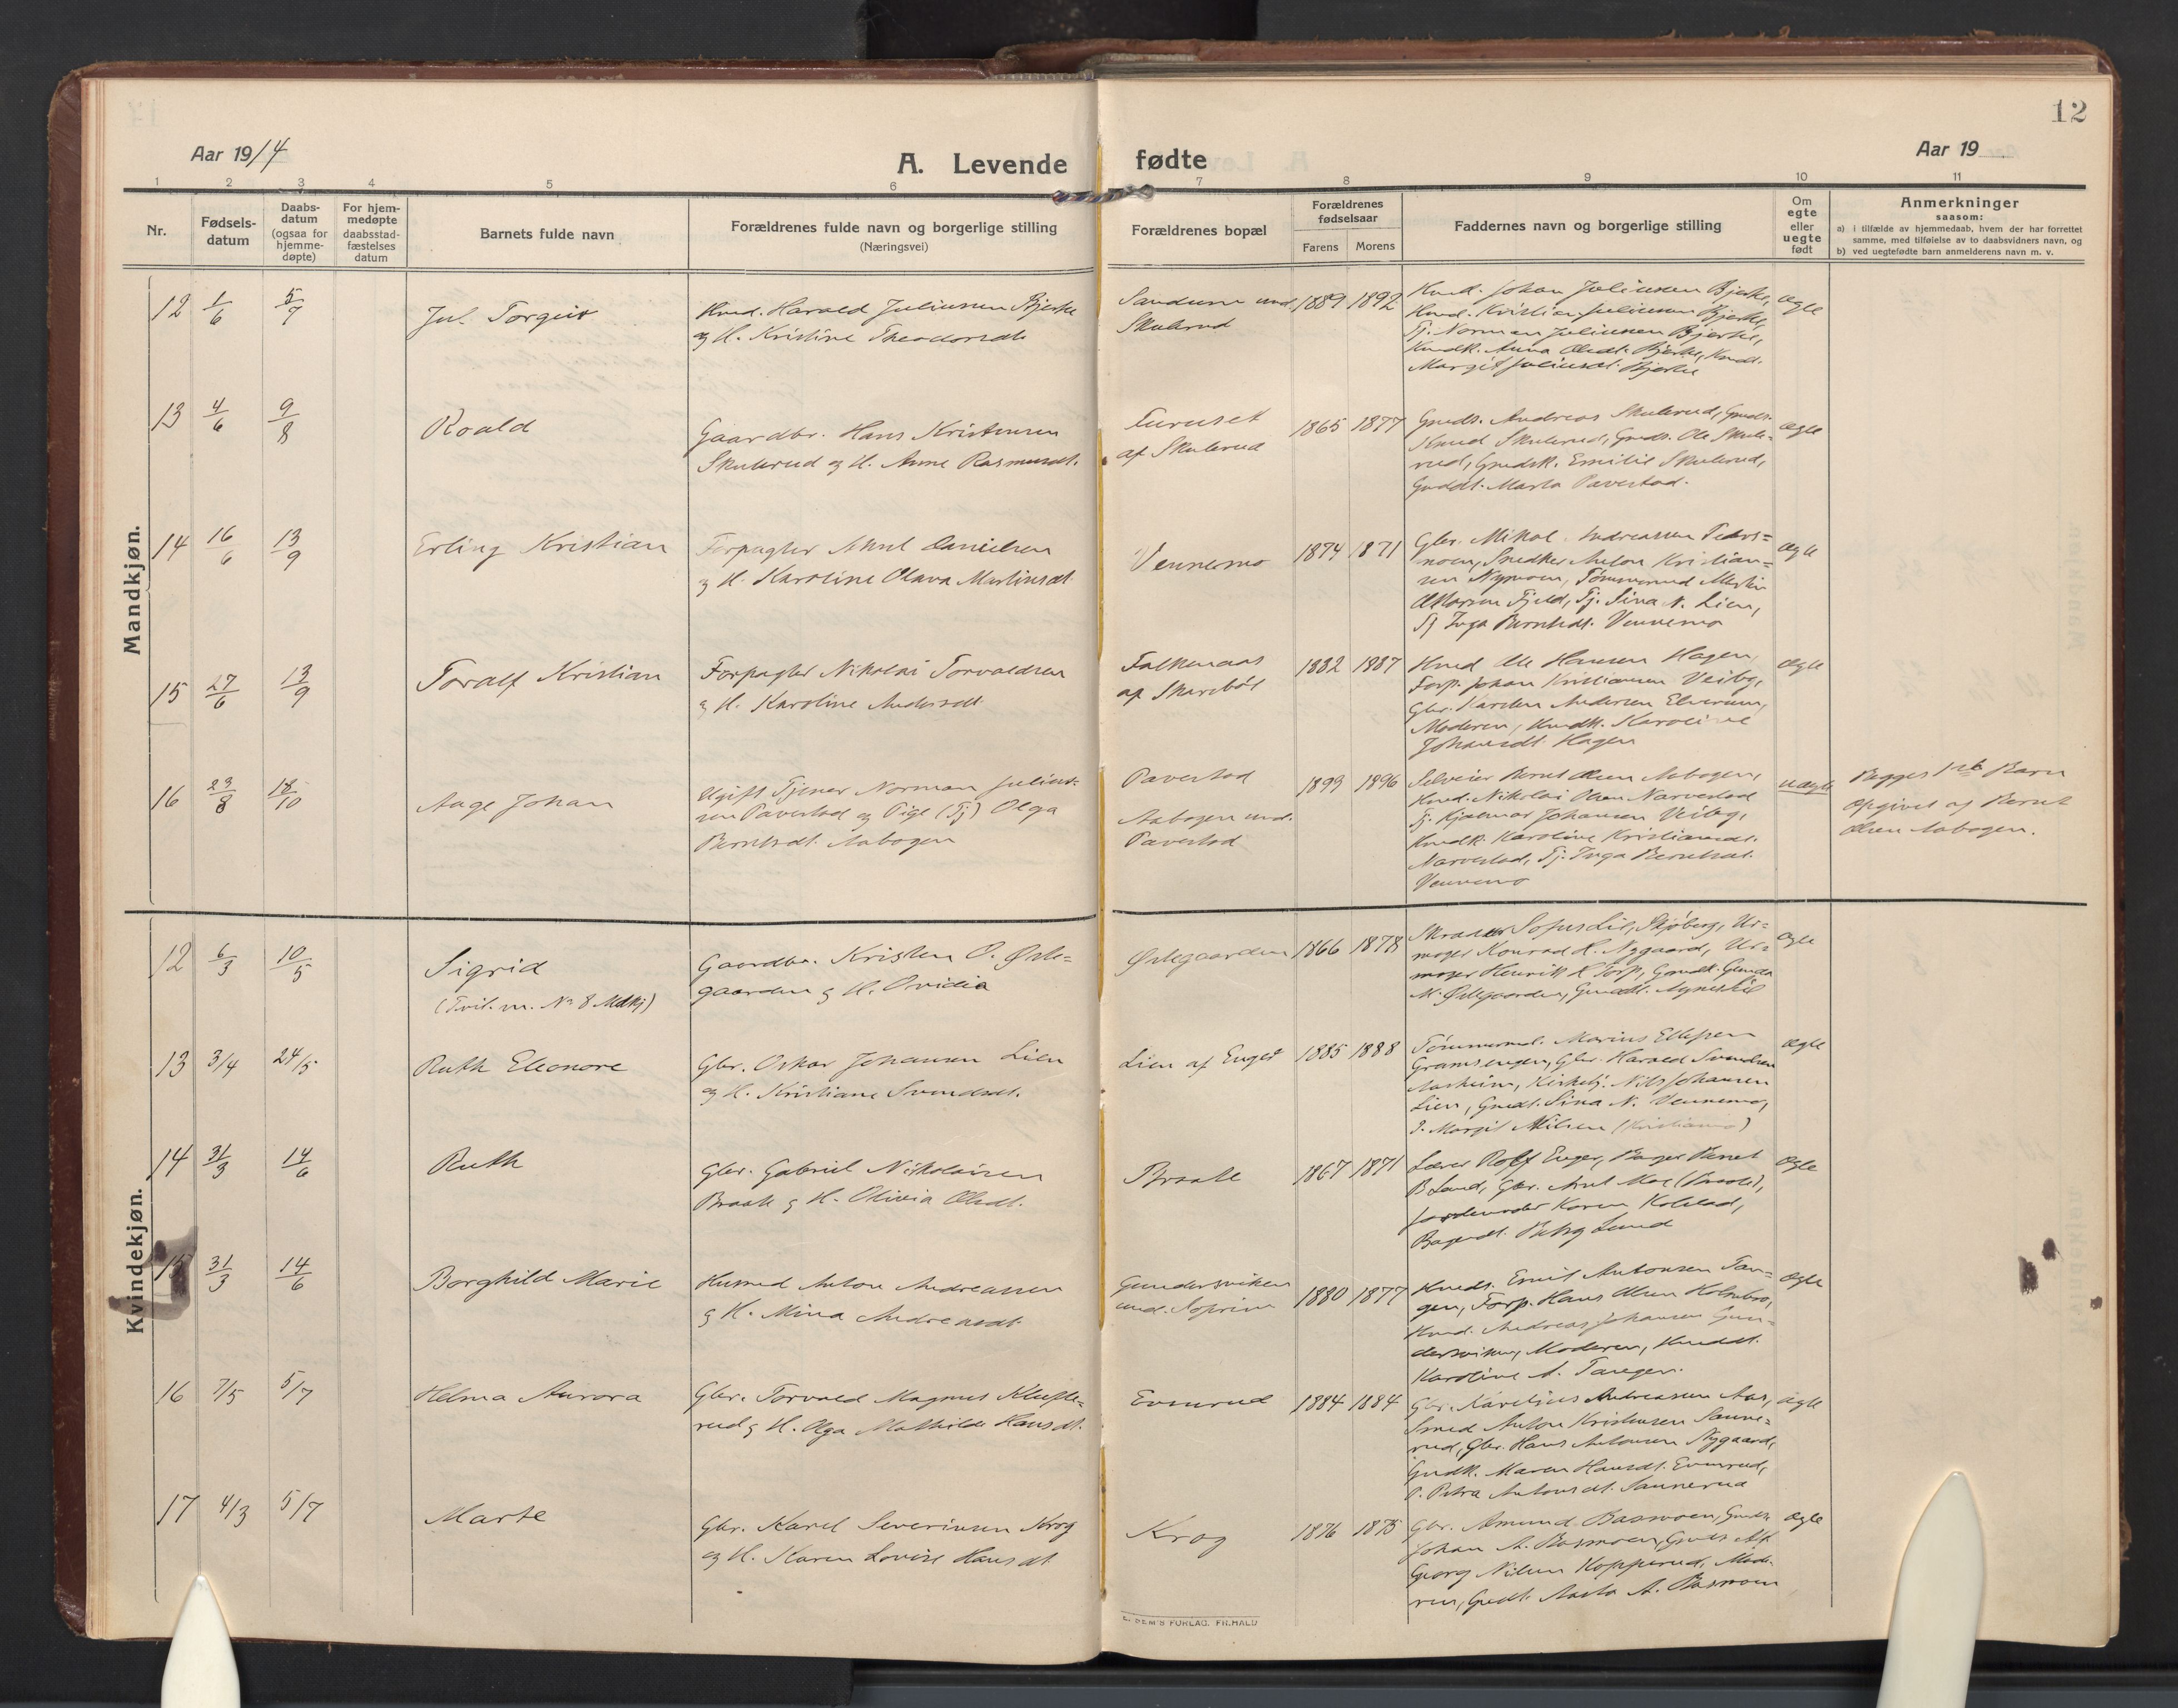 12
Aar 1914
A. Levende fødte
Aar 19
1 2 3 4 5 6 7 8 9 10 11
Nr.
Fødsels-
datum
Daabs-
datum
(ogsaa for
hjemme-
døpte)
For hjem-
medøpte
daabsstad-
fæstelses
datum
Barnets fulde navn
Forældrenes fulde navn og borgerlige stilling
(Næringsvei)
Forældrenes bopæl
Forældrenes
fødselsaar
Farens Morens
Faddernes navn og borgerlige stilling
Om
egte
eller
uegte
født
Anmerkninger
saasom:
a) i tilfælde av hjemmedaab, hvem der har forrettet
samme, med tilføielse av to daabsvidners navn, og
b) ved uegtefødte barn anmelderens navn m. v.
Mandkjøn.
12 1/6 5/7
Jul Torgeir
Hmd. Harald Juliussen Bjerke
og H. Kristine Theodorsdt.
Sandum und.
Skulerud
1889 1892
Hmd. Johan Juliussen Bjerke,
Hmd. Kristian Juliussen Bjerke,
Tj. Norman Juliussen Bjerke,
Hmdk. Anna Olsdt. Bjerke, Hmdt.
Margit Juliusdt. Bjerke
Ægte
13 4/6 9/8
Roald
Gaardbr. Hans Kristensen
Skulerud og H. Anne Rasmusdt.
Furuset
af Skulerud
1865 1877
Gmds. Andreas Skulerud, Gmds.
Knud Skulerud, Gmds. Ole Skule-
rud, Gmdsk. Emilie Skulerud,
Gmddt. Marta Taverstad.
Ægte
14 16/6 13/9
Erling Kristian
Forpagter Anul Danielsen
og H. Karoline Olava Martinsdt.
Vennemo
1874 1871
Gbr. Mikal Andreassen Peders=
moen, Snedker Anton Kristian=
sen Nymoen, Tømmermd Martin
Fjeld, Tj. Sina N. Lien,
Tj Inga Berntsdt. Vennemo
Ægte
15 27/6 13/9
Toralf Kristian
Forpagter Nikolai Torvaldsen
og H. Karoline Andersdt.
Falkenaas
af Skarebøl
1882 1887
Hmd Ole Hansen Hagen,
Forp. Johan Kristiansen Veiby,
Gbr. Karsten Andersen Elverum,
Moderen, Hmdk. Karoline
Johansdt. Hagen
Ægte
16 23/8 18/10
Aage Johan
Ugift Tjener Norman Julius-
sen Taverstad og Pige (Tj) Olga
Berntsdt. Aabogen
Taverstad
Aabogen und.
Taverstad
1893 1896
Selveier Bernt Olsen Aabogen,
Hmd. Nikolai Olsen Narvestad
Tj. Hjalmar Johansen Veiby,
Hmdk. Karoline Kristiansdt.
Narvestad, Tj. Inga Berntsdt.
Vennemo
Uægte
Begges 1ste Barn
Opgivet af Bernt
Olsen Aabogen.
Kvindekjøn.
12 6/3 10/5
Sigrid
(Tvil. m. No 8 Mdkj)
Gaardbr. Kristen O. Ørle=
gaarden og H. Ovidia
Ørlegaarden
1866 1878
Skrædder Sofus Lie, Skjøberg, Ur=
mager Konrad K. Nygaard, Ur=
mager Henrik K Torp, Gmdk. Gunda
M. Ørlegaarden, Gmddt. Agnes Lie
Ægte
13 3/4 24/5
Ruth Eleonore
Gbr. Oskar Johansen Lien
og H. Kristiane Svendsdt.
Lien af Enget
1885 1888
Tømmermd. Marius Ellefsen
Gramsengen, Gbr. Harald Svendsen
Aasheim, Kirketj. Nils Johansen
Lien, Gmdt. Sina N. Vennemo,
P. Margit Nilsen (Kristiania)
Ægte
14 31/3 14/6
Ruth
Gbr. Gabriel Nikolaisen
Braate og H. Olivia Olsdt.
Braate
1867 1871
Lærer Rolf Enger, Bager Bernt
B Lund, Gbr. Arnt Moe (Braate),
Jordemoder Karen Kolstad,
Bagerdt. Betsy Lund
Ægte
15 31/3 14/6
Borghild Marie
Husmd Anton Andreassen
og H. Mina Andreasdt.
Gundersviken
und. Soprim
1880 1877
Hmds. Emil Antonsen Tan=
gen, Forp. Hans Olsen Holmbro,
Hmd. Andreas Johansen Gun=
dersviken, Moderen, Hmddt.
Karoline A. Tangen.
Ægte
16 7/5 5/7
Helma Aurora
Gbr. Torvald Magnus Klufte=
rud og H. Olga Mathilde Hansdt.
Evenrud
1884 1884
Gbr. Karelius Andreassen Aas,
Smed Anton Kristensen Sanne=
rud, Gbr. Hans Antonsen Nygaard,
Gmdk. Maren Hansdt. Evenrud,
P. Petra Antonsdt. Sannerud
Ægte
17 4/3 5/7
Marte
Gbr. Karel Severinsen Krog
og H. Karen Lovise Hansdt
Krog
1876 1875
Gbr. Amund Basmoen, Gmds.
Johan A. Basmoen, Gmds Alf
Georg Nilsen Kopperud, Mode-
ren, Gmdt. Aasta A. Basmoen
Ægte
FORLAG. FR.HALD